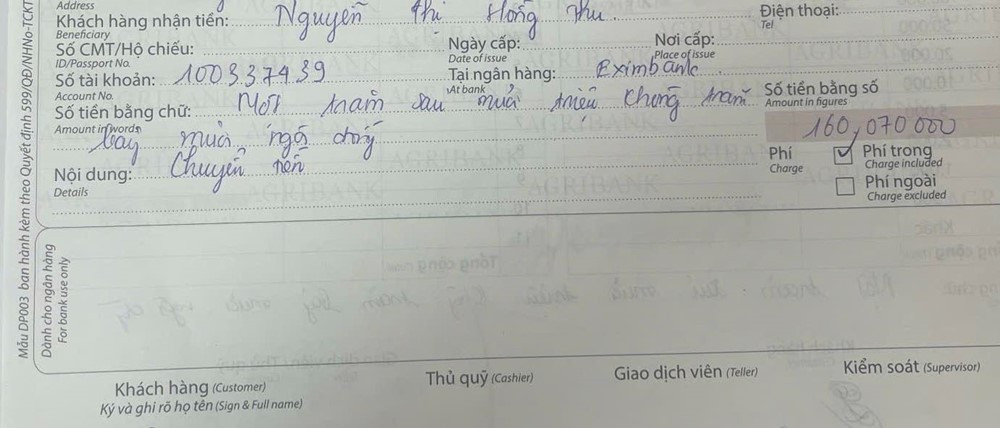 Address
Khách hàng nhận tiền: Nguyễn Thị Hồng Thu
Điện thoại:
Beneficiary
Tel
Số CMT/Hộ chiếu:
Ngày cấp:
Nơi cấp:
ID/Passport No.
Date of issue
Place of issue
Số tài khoản: 100337439
Tại ngân hàng: Eximbank
Account No.
At bank
Số tiền bằng chữ: Một trăm sáu mươi triệu không trăm
Số tiền bằng số
Amount in words
Amount in figures
bảy mươi ngà đồng
160,070 000
Nội dung: Chuyển tiền
Details
Phí
Charge
Phí trong
Charge included
Phí ngoài
Charge excluded
Mẫu DP003 ban hành kèm theo Quyết định 599/QĐ/NHNo-TCKT
Dành cho ngân hàng
For bank use only
Khách hàng (Customer)
Ký và ghi rõ họ tên (Sign & Full name)
Thủ quỹ (Cashier)
Giao dịch viên (Teller)
Kiểm soát (Supervisor)